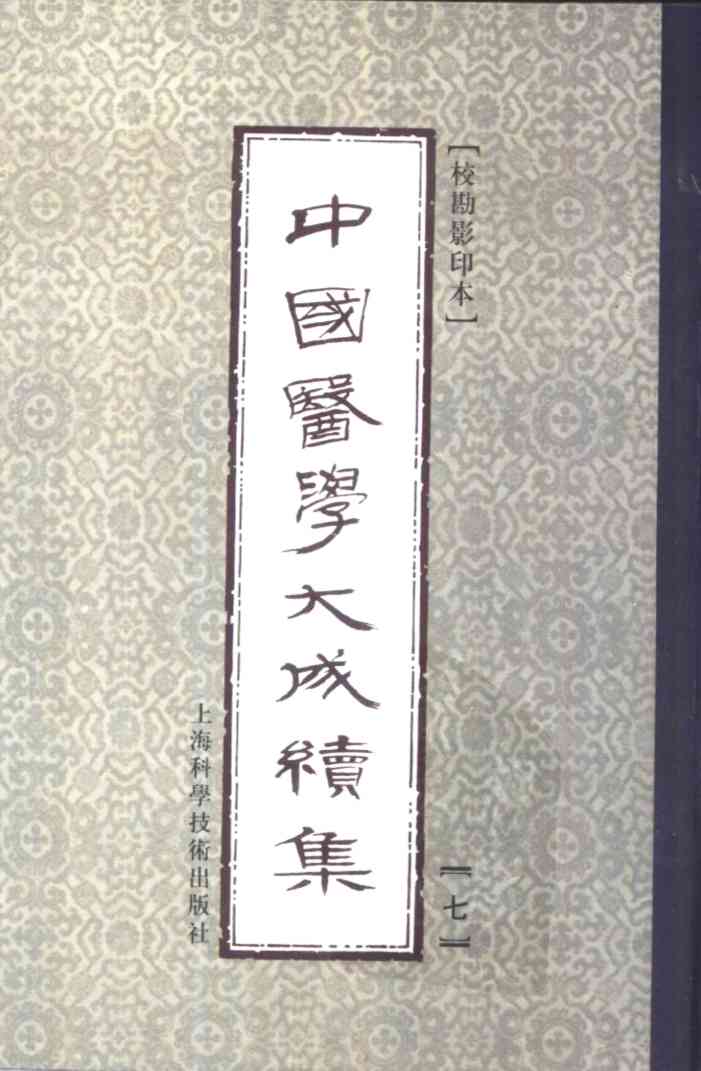 【校勘影印本】
中國醫學大成續集
〖七〗
上海科學技術出版社